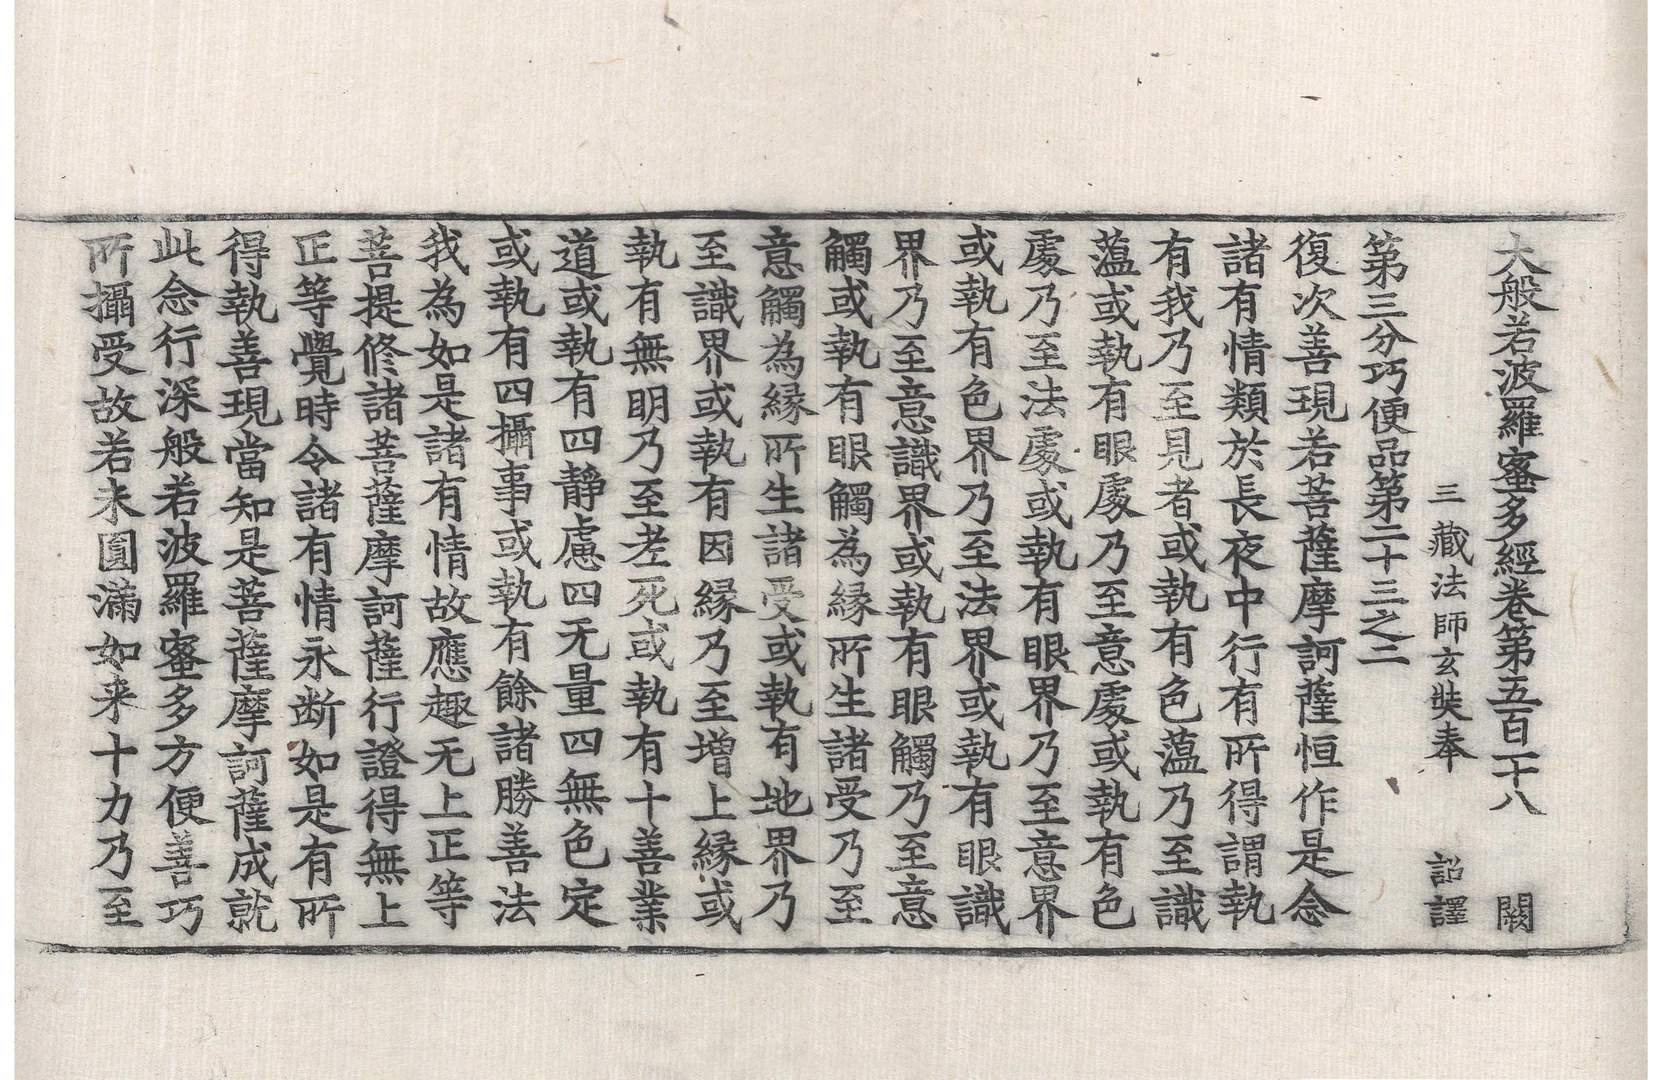 大般若波羅蜜多經卷第五百二十八 闕
三藏法師玄奘奉 詔譯
第三分巧便品第二十三之二
復次善現若菩薩摩訶薩恒作是念
諸有情類於長夜中行有所得謂執
有我乃至見者或執有色蕰乃至識
蕰或執有眼處乃至意處或執有色
處乃至法處或執有眼界乃至意界
或執有色界乃至法界或執有眼識
界乃至意識界或執有眼觸乃至意
觸或執有眼觸為緣所生諸受乃至
意觸為緣所生諸受或執有地界乃
至識界或執有因緣乃至增上緣或
執有無明乃至老死或執有十善業
道或執有四靜慮四无量四無色定
或執有四攝事或執有餘諸勝善法
我為如是諸有情故應趣无上正等
菩提修諸菩薩摩訶薩行證得無上
正等覺時令諸有情永断如是有所
得執善現當知是菩薩摩訶薩成就
此念行深般若波羅蜜多方便善巧
所攝受故若未圓滿如来十力乃至